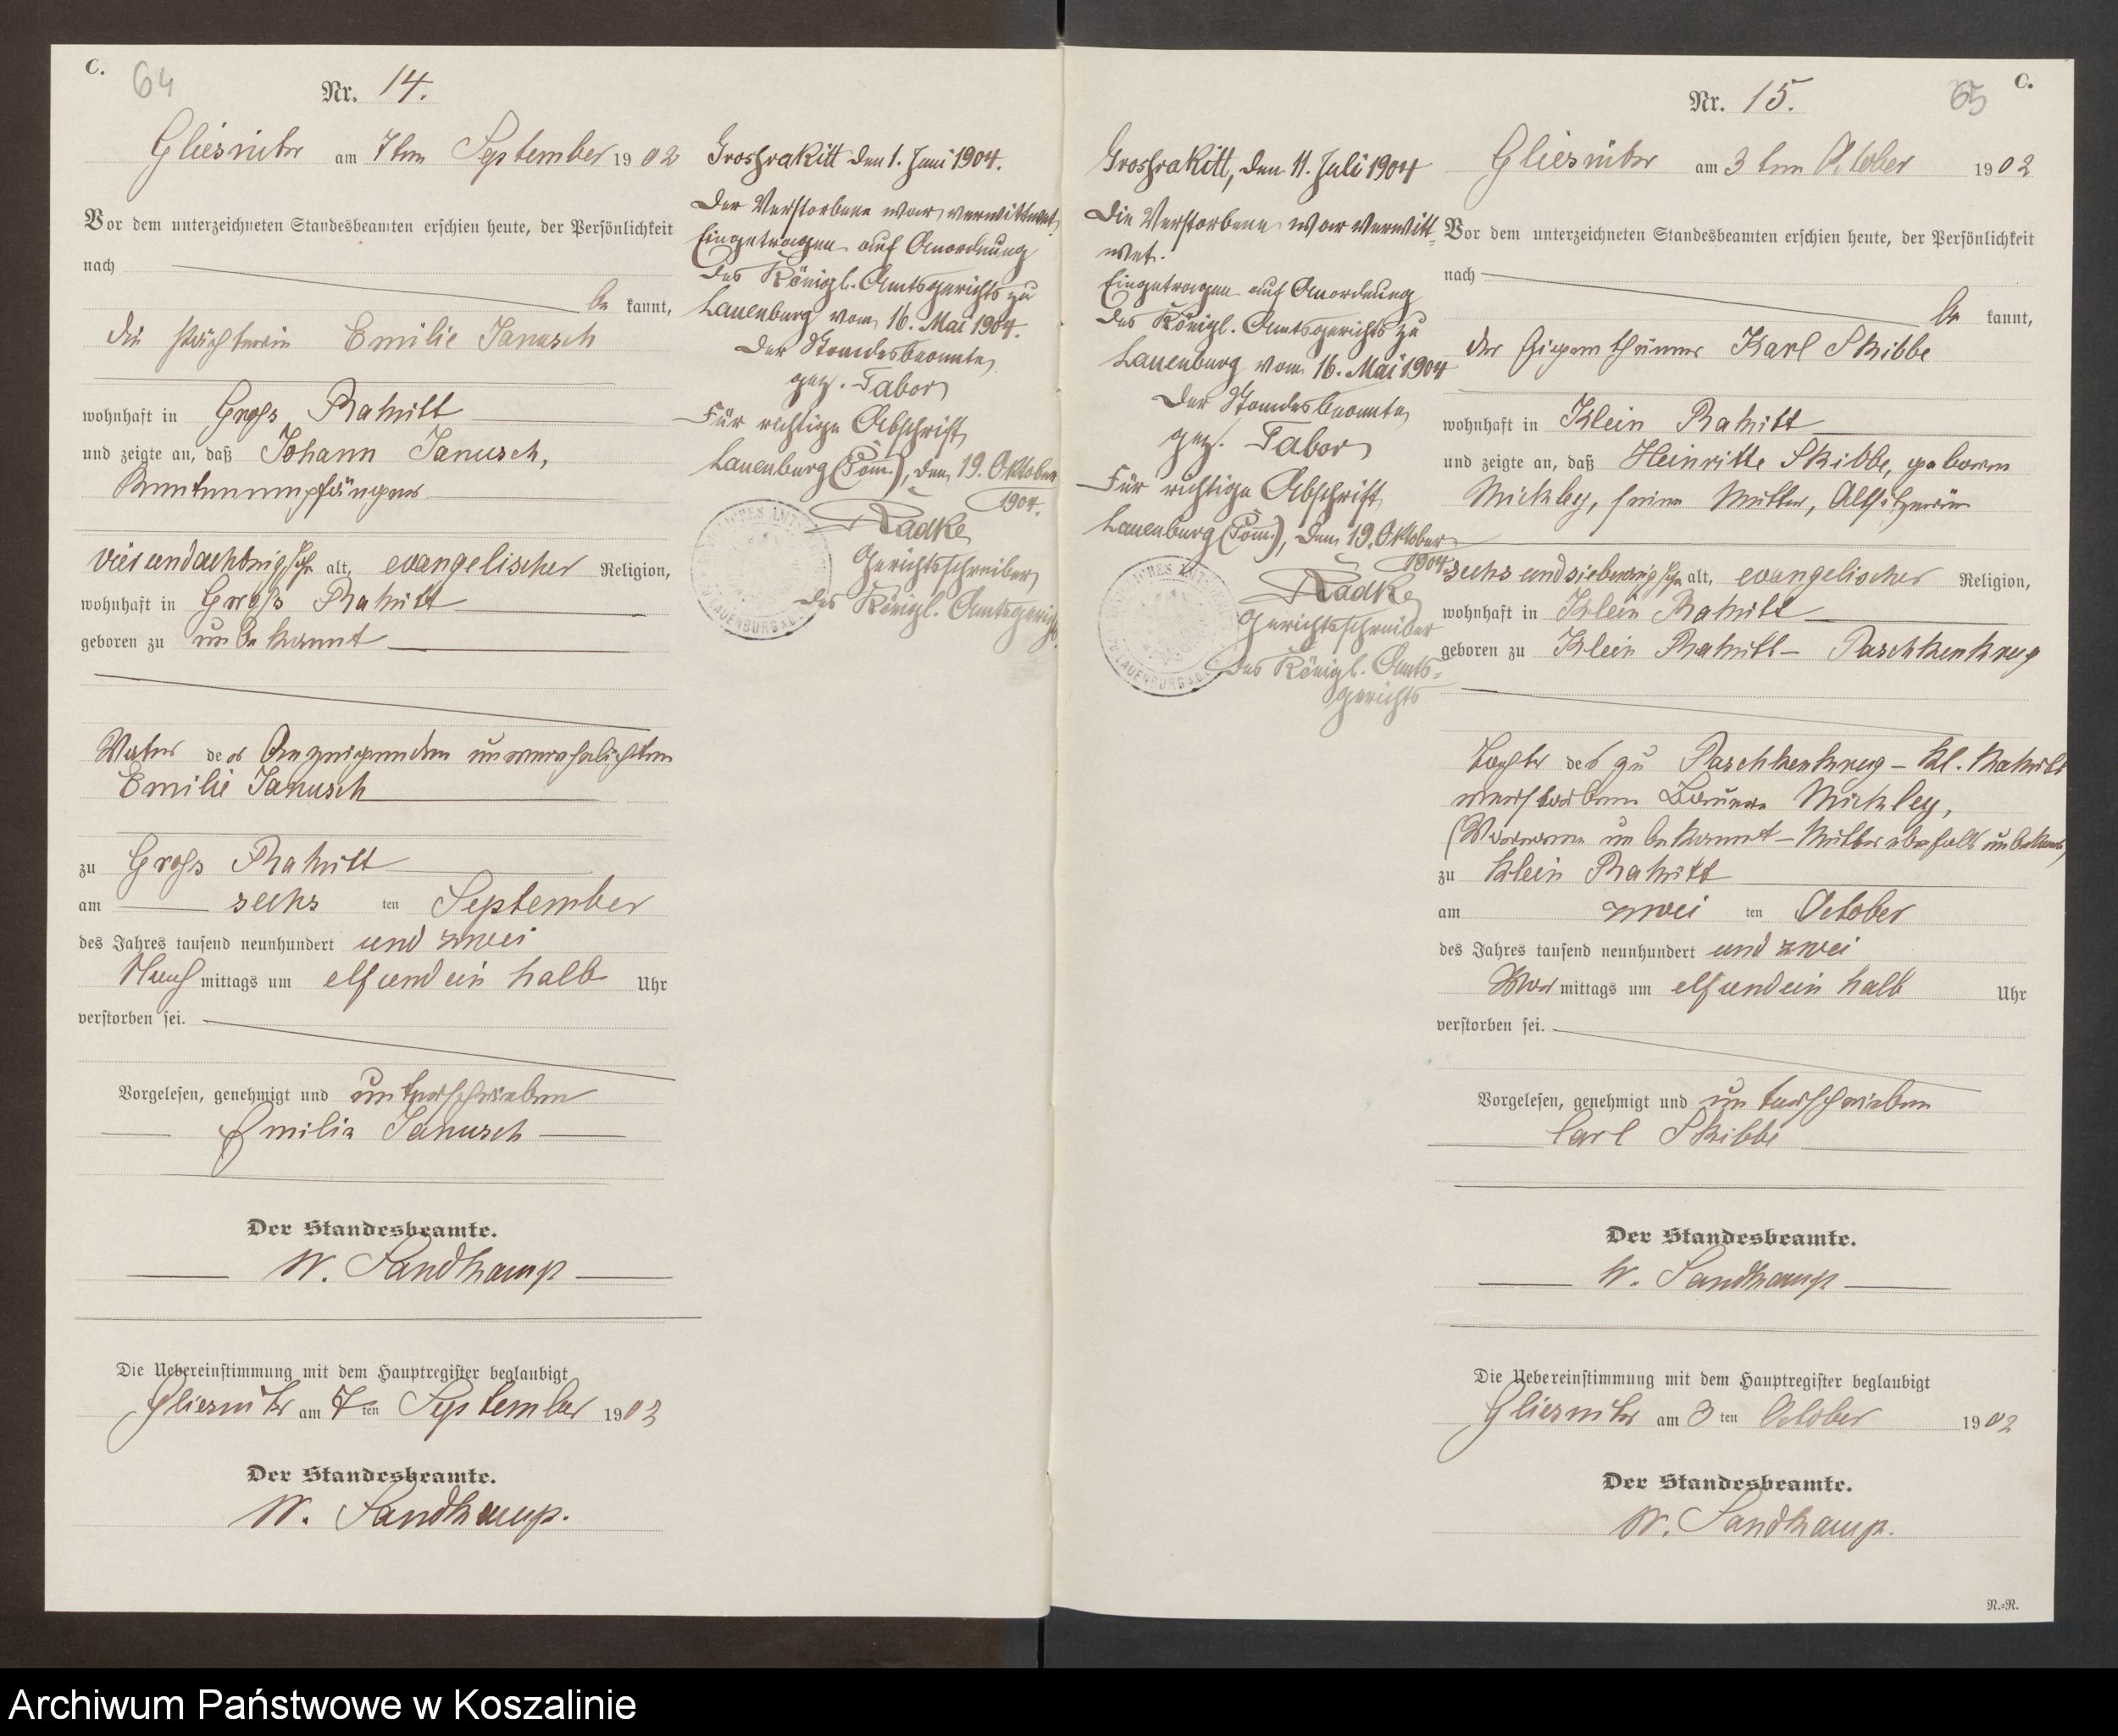 C.
64
Nr. 14.
Gliesnitz am 7ten September 1902
Vor dem unterzeichneten Standesbeamten erschien heute, der Persönlichkeit
nach
be kannt,
die Emilie Janusch
wohnhaft in Gross Rakitt
und zeigte an, daß Johann Janusch,
Rentenempfänger
vierundachtzig Jahr alt, evangelischer Religion,
wohnhaft in Gross Rakitt
geboren zu unbekannt
Vater der Anzeigenden unverehelichten
Emilie Janusch
zu Gross Rakitt
am sechs ten September
des Jahres tausend neunhundert und zwei
Nach mittags um elf und ein halb Uhr
verstorben sei.
Vorgelesen, genehmigt und unterschrieben
Emilie Janusch
Der Standesbeamte.
W. Sandkamp
Die Uebereinstimmung mit dem Hauptregister beglaubigt
Gliesnitz am 7ten September 1902
Der Standesbeamte.
W. Sandkamp.
Grossrakitt den 1. Juni 1904.
Der Verstorbene war verwittwet
Eingetragen auf Anordnung
des Königl. Amtsgerichts zu
Lauenburg vom 16. Mai 1904.
Der Standesbeamte
gez. Tabor
Für richtige Abschrift
Lauenburg (Pom.), den 19. Oktober
1904.
Radke
Gerichtsschreiber
des Königl. Amtsgerichts.
Grossrakitt, den 11. Juli 1904
Die Verstorbene war verwitt=
wet.
Eingetragen auf Anordnung
des Königl. Amtsgerichts zu
Lauenburg vom 16. Mai 1904
Der Standesbeamte
gez. Tabor
Für richtige Abschrift
Lauenburg (Pom.), den 19. Oktober
1904.
Radke
Gerichtsschreiber
des Königl. Amts=
gerichts
C.
65
Nr. 15.
Gliesnitz am 3ten October 1902
Vor dem unterzeichneten Standesbeamten erschien heute, der Persönlichkeit
nach
be kannt,
der Eigenthümer Karl Skibbe
wohnhaft in Klein Rakitt
und zeigte an, daß Heinritte Skibbe, geborene
Mickley, seine Mutter, Altsitzerin
sechs und siebenzig Jahr alt, evangelischer Religion,
wohnhaft in Klein Rakitt
geboren zu Klein Rakitt- Paschkenkrug
Tochter des zu Paschkenkrug - Kl. Rakitt
verstorbenen Bauern Mickley,
(Vorname unbekannt - Mutter ebenfalls unbekannt)
zu Klein Rakitt
am zwei ten October
des Jahres tausend neunhundert und zwei
Vor mittags um elf und ein halb Uhr
verstorben sei.
Vorgelesen, genehmigt und unterschrieben
Carl Skibbe
Der Standesbeamte.
W. Sandkamp
Die Uebereinstimmung mit dem Hauptregister beglaubigt
Gliesnitz am 3ten October 1902
Der Standesbeamte.
W. Sandkamp.
N.=R.
Archiwum Państwowe w Koszalinie